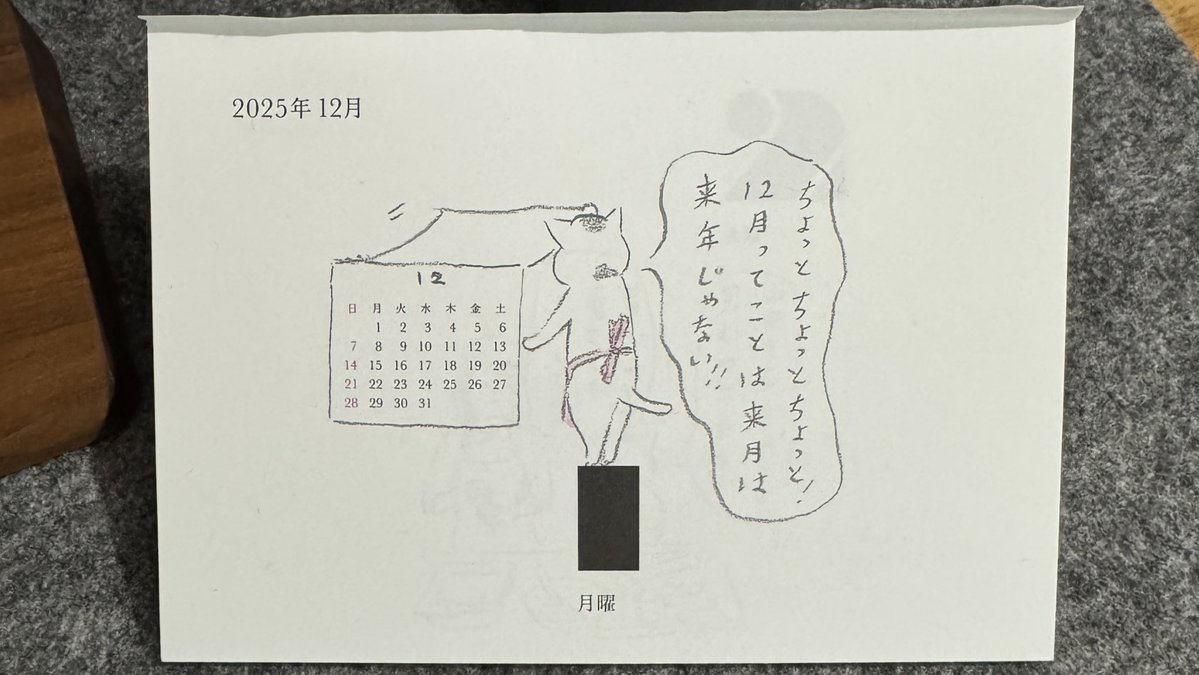 2025年12月
12
日 月 火 水 木 金 土
1 2 3 4 5 6
7 8 9 10 11 12 13
14 15 16 17 18 19 20
21 22 23 24 25 26 27
28 29 30 31
ちょっとちょっとちょっと!
12月ってことは来月は
来年じゃない!!
月曜